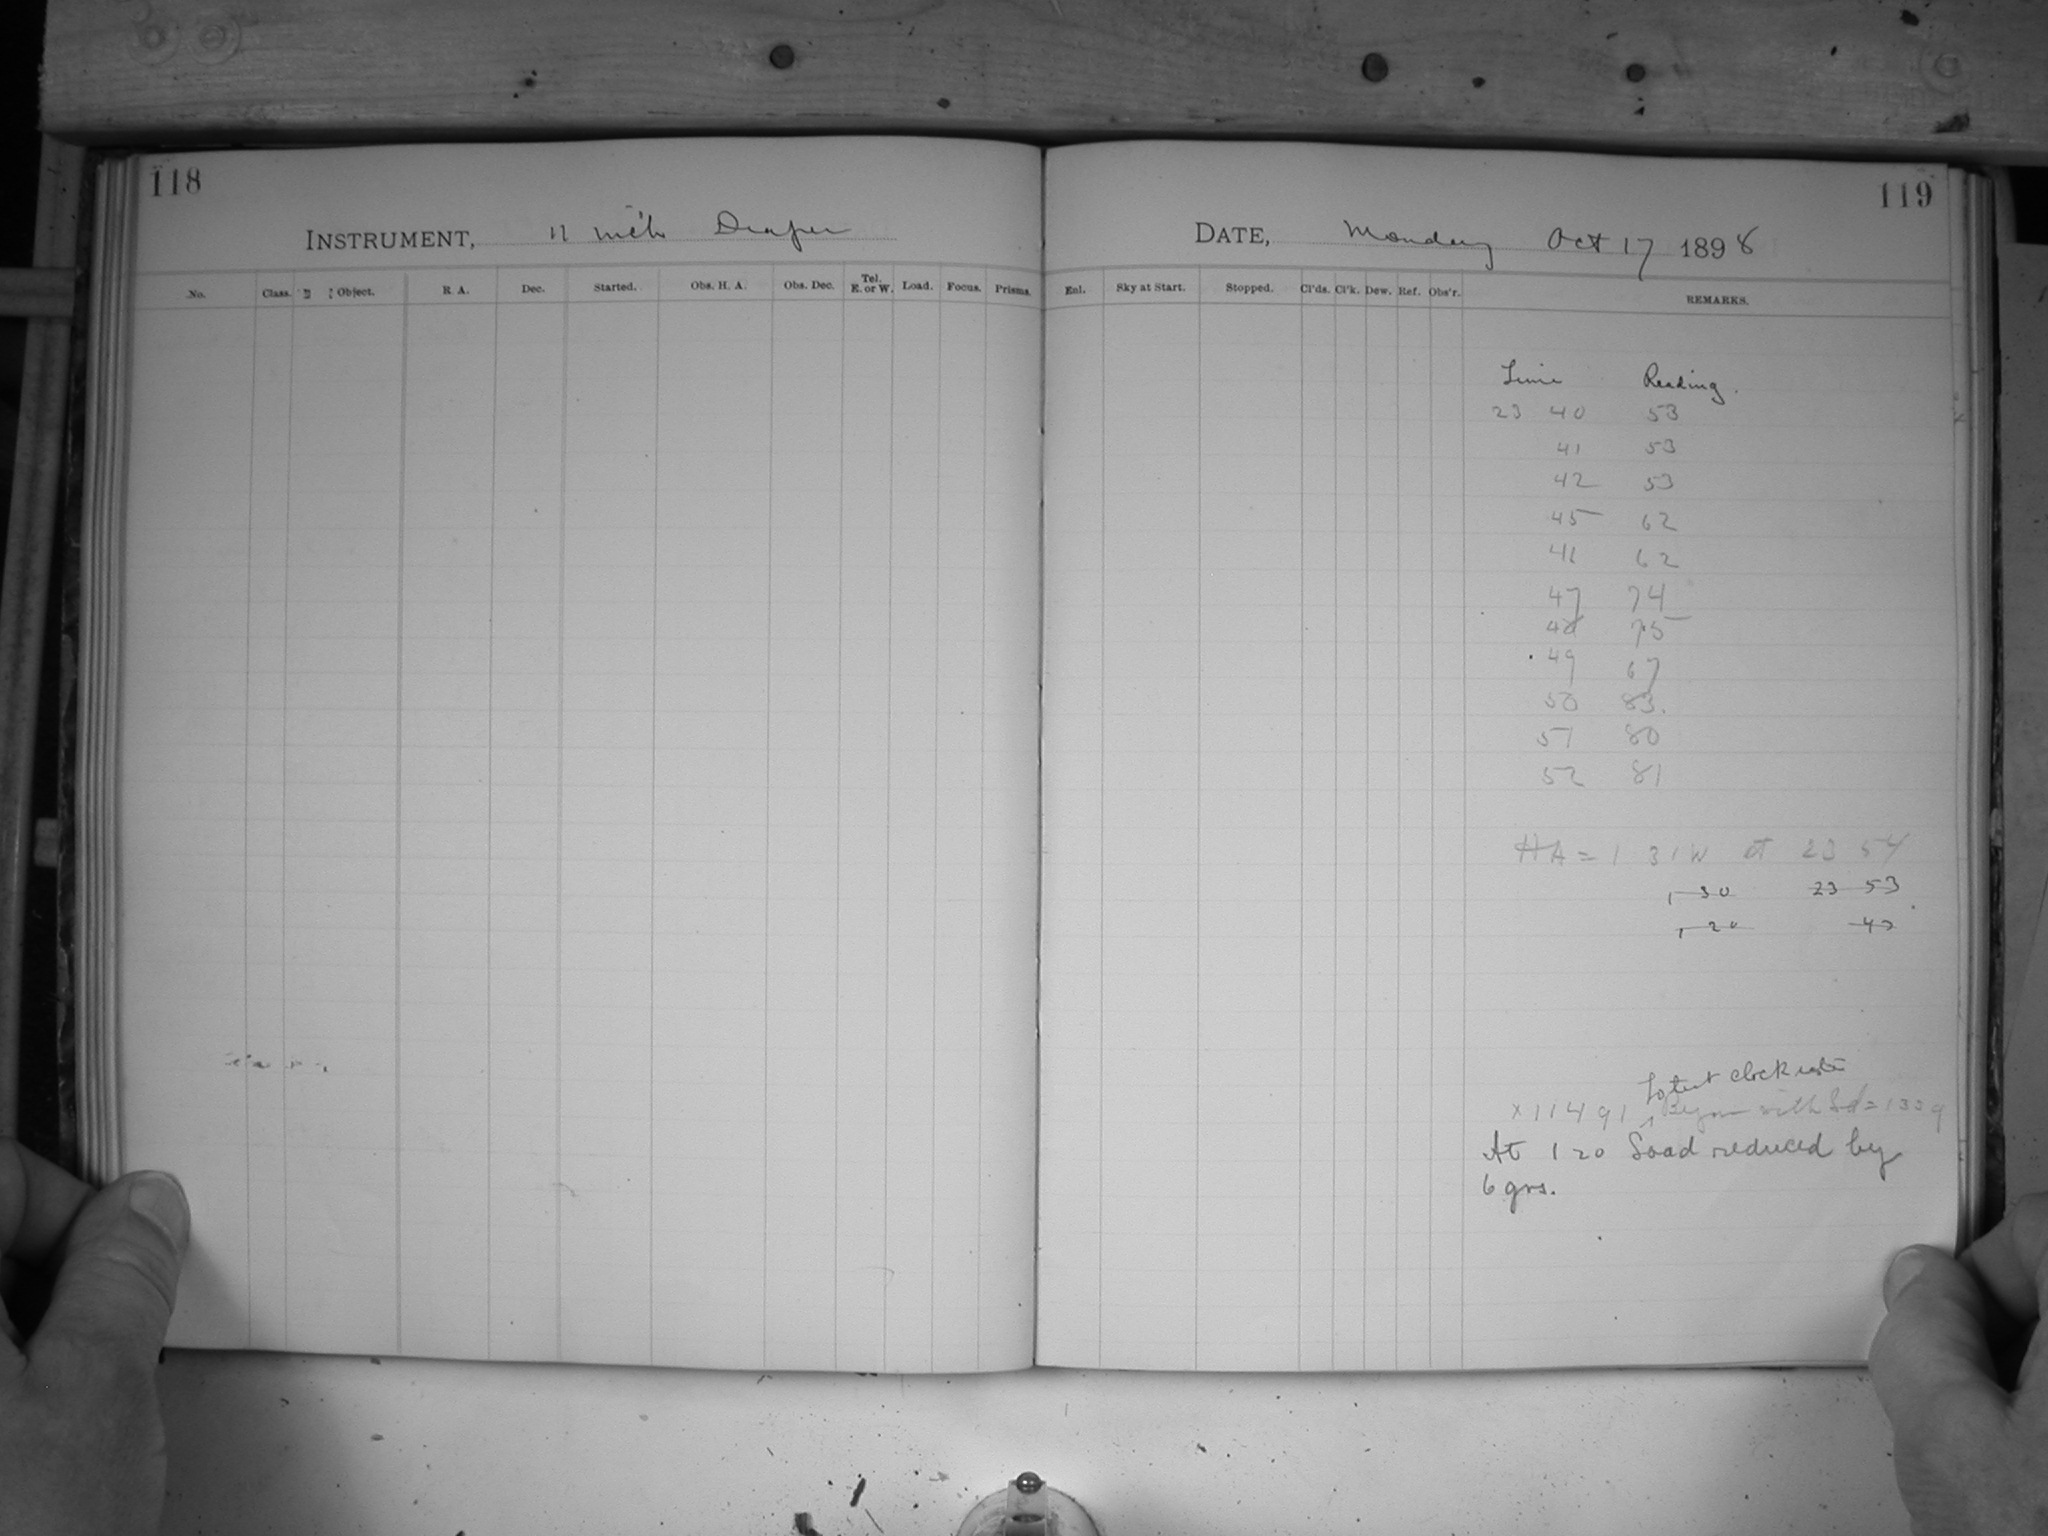 118
INSTRUMENT, 11 inch Draper
No. Class. Object. R. A. Dec. Started. Obs. H. A. Obs. Dec. Tel. E. or W. Load. Focus. Prisms.
119
DATE, Monday Oct 17 1898
Enl. Sky at Start. Stopped. Cl'ds. Cl'k. Dew. Ref. Obs'r. REMARKS.
Time Reading.
23 40 53
41 53
42 53
45 62
46 62
47 74
48 75
49 67
50 83.
51 80
52 81
HA = 1 31 W at 23 54
1 30 23 53
1 20 43
to test clock rate
X 11491 Began with Ld = 1339
At 1 20 Load reduced by
6 grs.